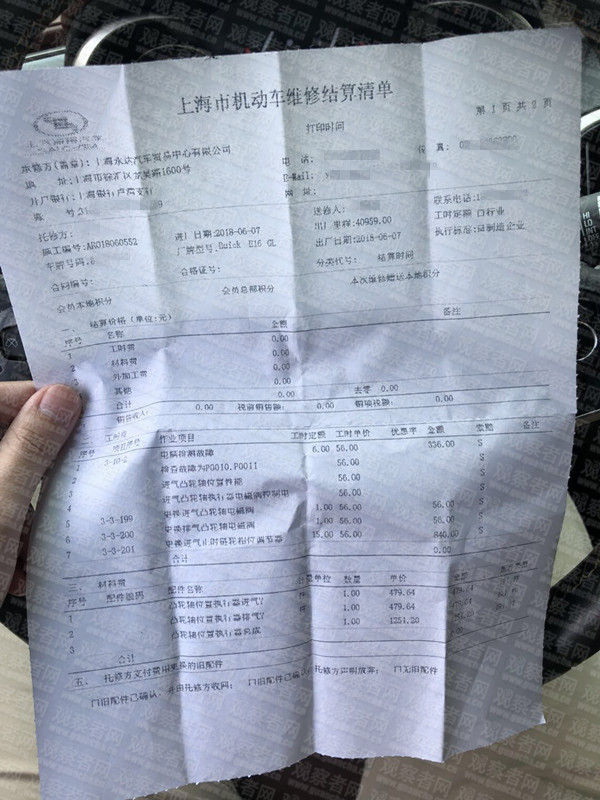 上海市机动车维修结算清单
第 1 页 共 2 页
打印时间
承修方(盖章):上海永达汽车贸易中心有限公司
电 话:
传 真:
地 址:上海市徐汇区龙吴路1600号
E-Mail:
开户银行:上海银行卢湾支行
网 址:
账 号:
托修方:
送修人:
联系电话:
施工编号:AR018060552
进厂日期:2018-06-07
出厂里程:40959.00
工时定额 口行业
车牌号码:
厂牌型号:Buick E16 GL
出厂日期:2018-06-07
执行标准: 制造企业
合同编号:
合格证号:
分类代号:
结算时间
会员本地积分
会员总部积分
本次维修赠送本地积分
一、 结算价格(单位:元)
序号 名称 金额 备注
1 工时费 0.00
2 材料费 0.00
3 外加工费 0.00
其他 0.00
合计 0.00 去零 0.00
销售收入: 0.00 税前销售额: 0.00 销项税额: 0.00
工时费
项目序号 作业项目 工时定额 工时单价 优惠率 金额 索赔 备注
1 3-10-2 电脑检测故障 6.00 56.00 336.00 S
2 检查故障为P0010.P0011 56.00 S
进气凸轮轴位置性能 56.00 S
进气凸轮轴执行器电磁阀控制电 56.00 S
5 3-3-199 更换进气凸轮轴电磁阀 1.00 56.00 56.00 S
6 3-3-200 更换排气凸轮轴电磁阀 1.00 56.00 56.00 S
7 3-3-201 更换进气正时链轮相位调节器 15.00 56.00 840.00 S
合计 0.00
三、 材料费
序号 配件编码 配件名称 计量单位 数量 单价 金额
1 凸轮轴位置执行器进气? 件 1.00 479.64 479.64
2 凸轮轴位置执行器排气? 件 1.00 479.64 479.64
3 凸轮轴位置执行器总成 1.00 1254.20
合计
五、 托修方支付费用更换的旧配件
门旧配件已确认,并由托修方收回; 门旧配件已确认,托修方声明放弃; 门无旧配件
观察者网